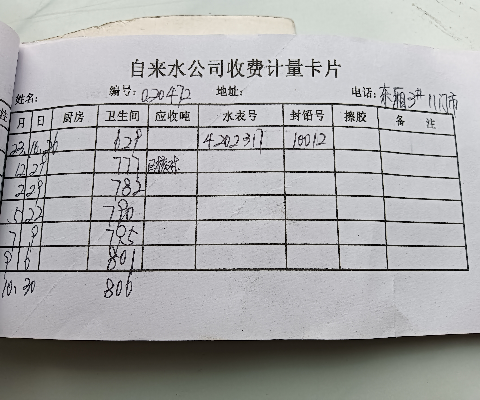 自来水公司收费计量卡片
姓名: 编号: 020472 地址: 电话: 东厢
月 日 厨房 卫生间 应收吨 水表号 封铅号 擦胶 备 注
23. 629 4202317 10012
12 29 777
2 29 782
5 22 790
7 9 795
9 6 801
10. 30 806